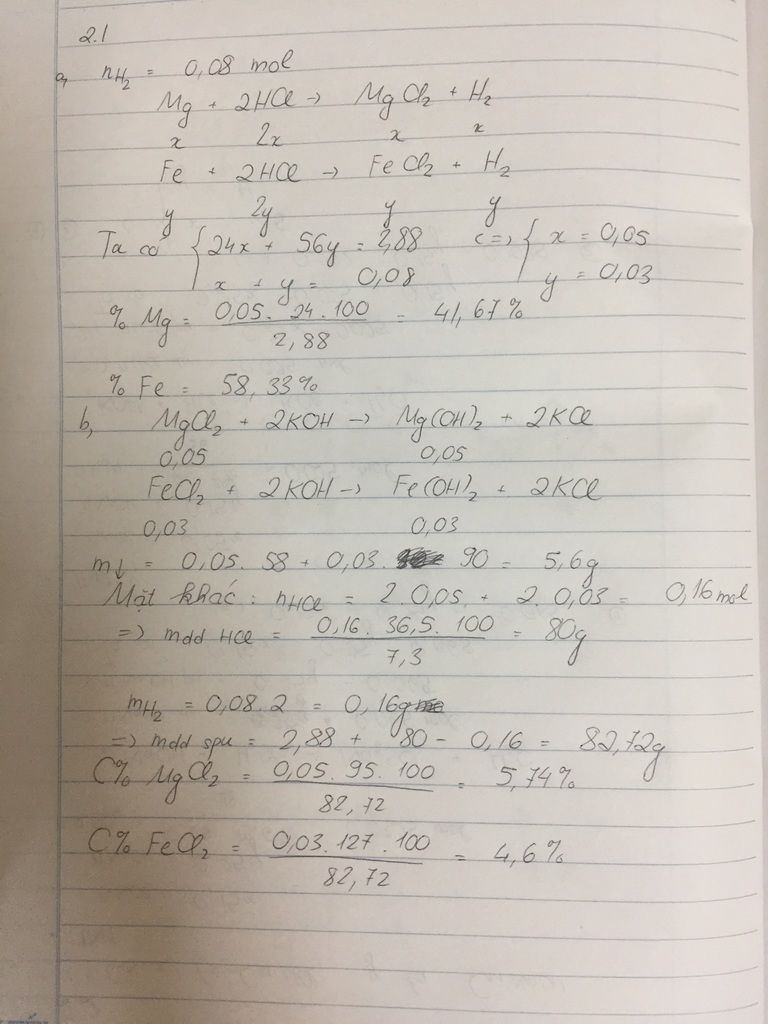 2.1
a, nH2 = 0,08 mol
Mg + 2HCl → MgCl2 + H2
x 2x x x
Fe + 2HCl → FeCl2 + H2
y 2y y y
Ta có { 24x + 56y = 2,88 <=> { x = 0,05
x + y = 0,08 y = 0,03
% Mg = 0,05. 24 .100 = 41,67%
2,88
% Fe = 58,33%
b, MgCl2 + 2KOH → Mg(OH)2 + 2KCl
0,05 0,05
FeCl2 + 2KOH → Fe(OH)2 + 2KCl
0,03 0,03
m↓ = 0,05. 58 + 0,03. 90 = 5,6g
Mặt khác : nHCl = 2.0,05 + 2.0,03 = 0,16 mol
=> mdd HCl = 0,16. 36,5. 100 = 80g
7,3
mH2 = 0,08.2 = 0,16g
=> mdd spu = 2,88 + 80 - 0,16 = 82,72g
C% MgCl2 = 0,05. 95. 100 = 5,74%
82,72
C% FeCl2 = 0,03.127.100 = 4,6%
82,72